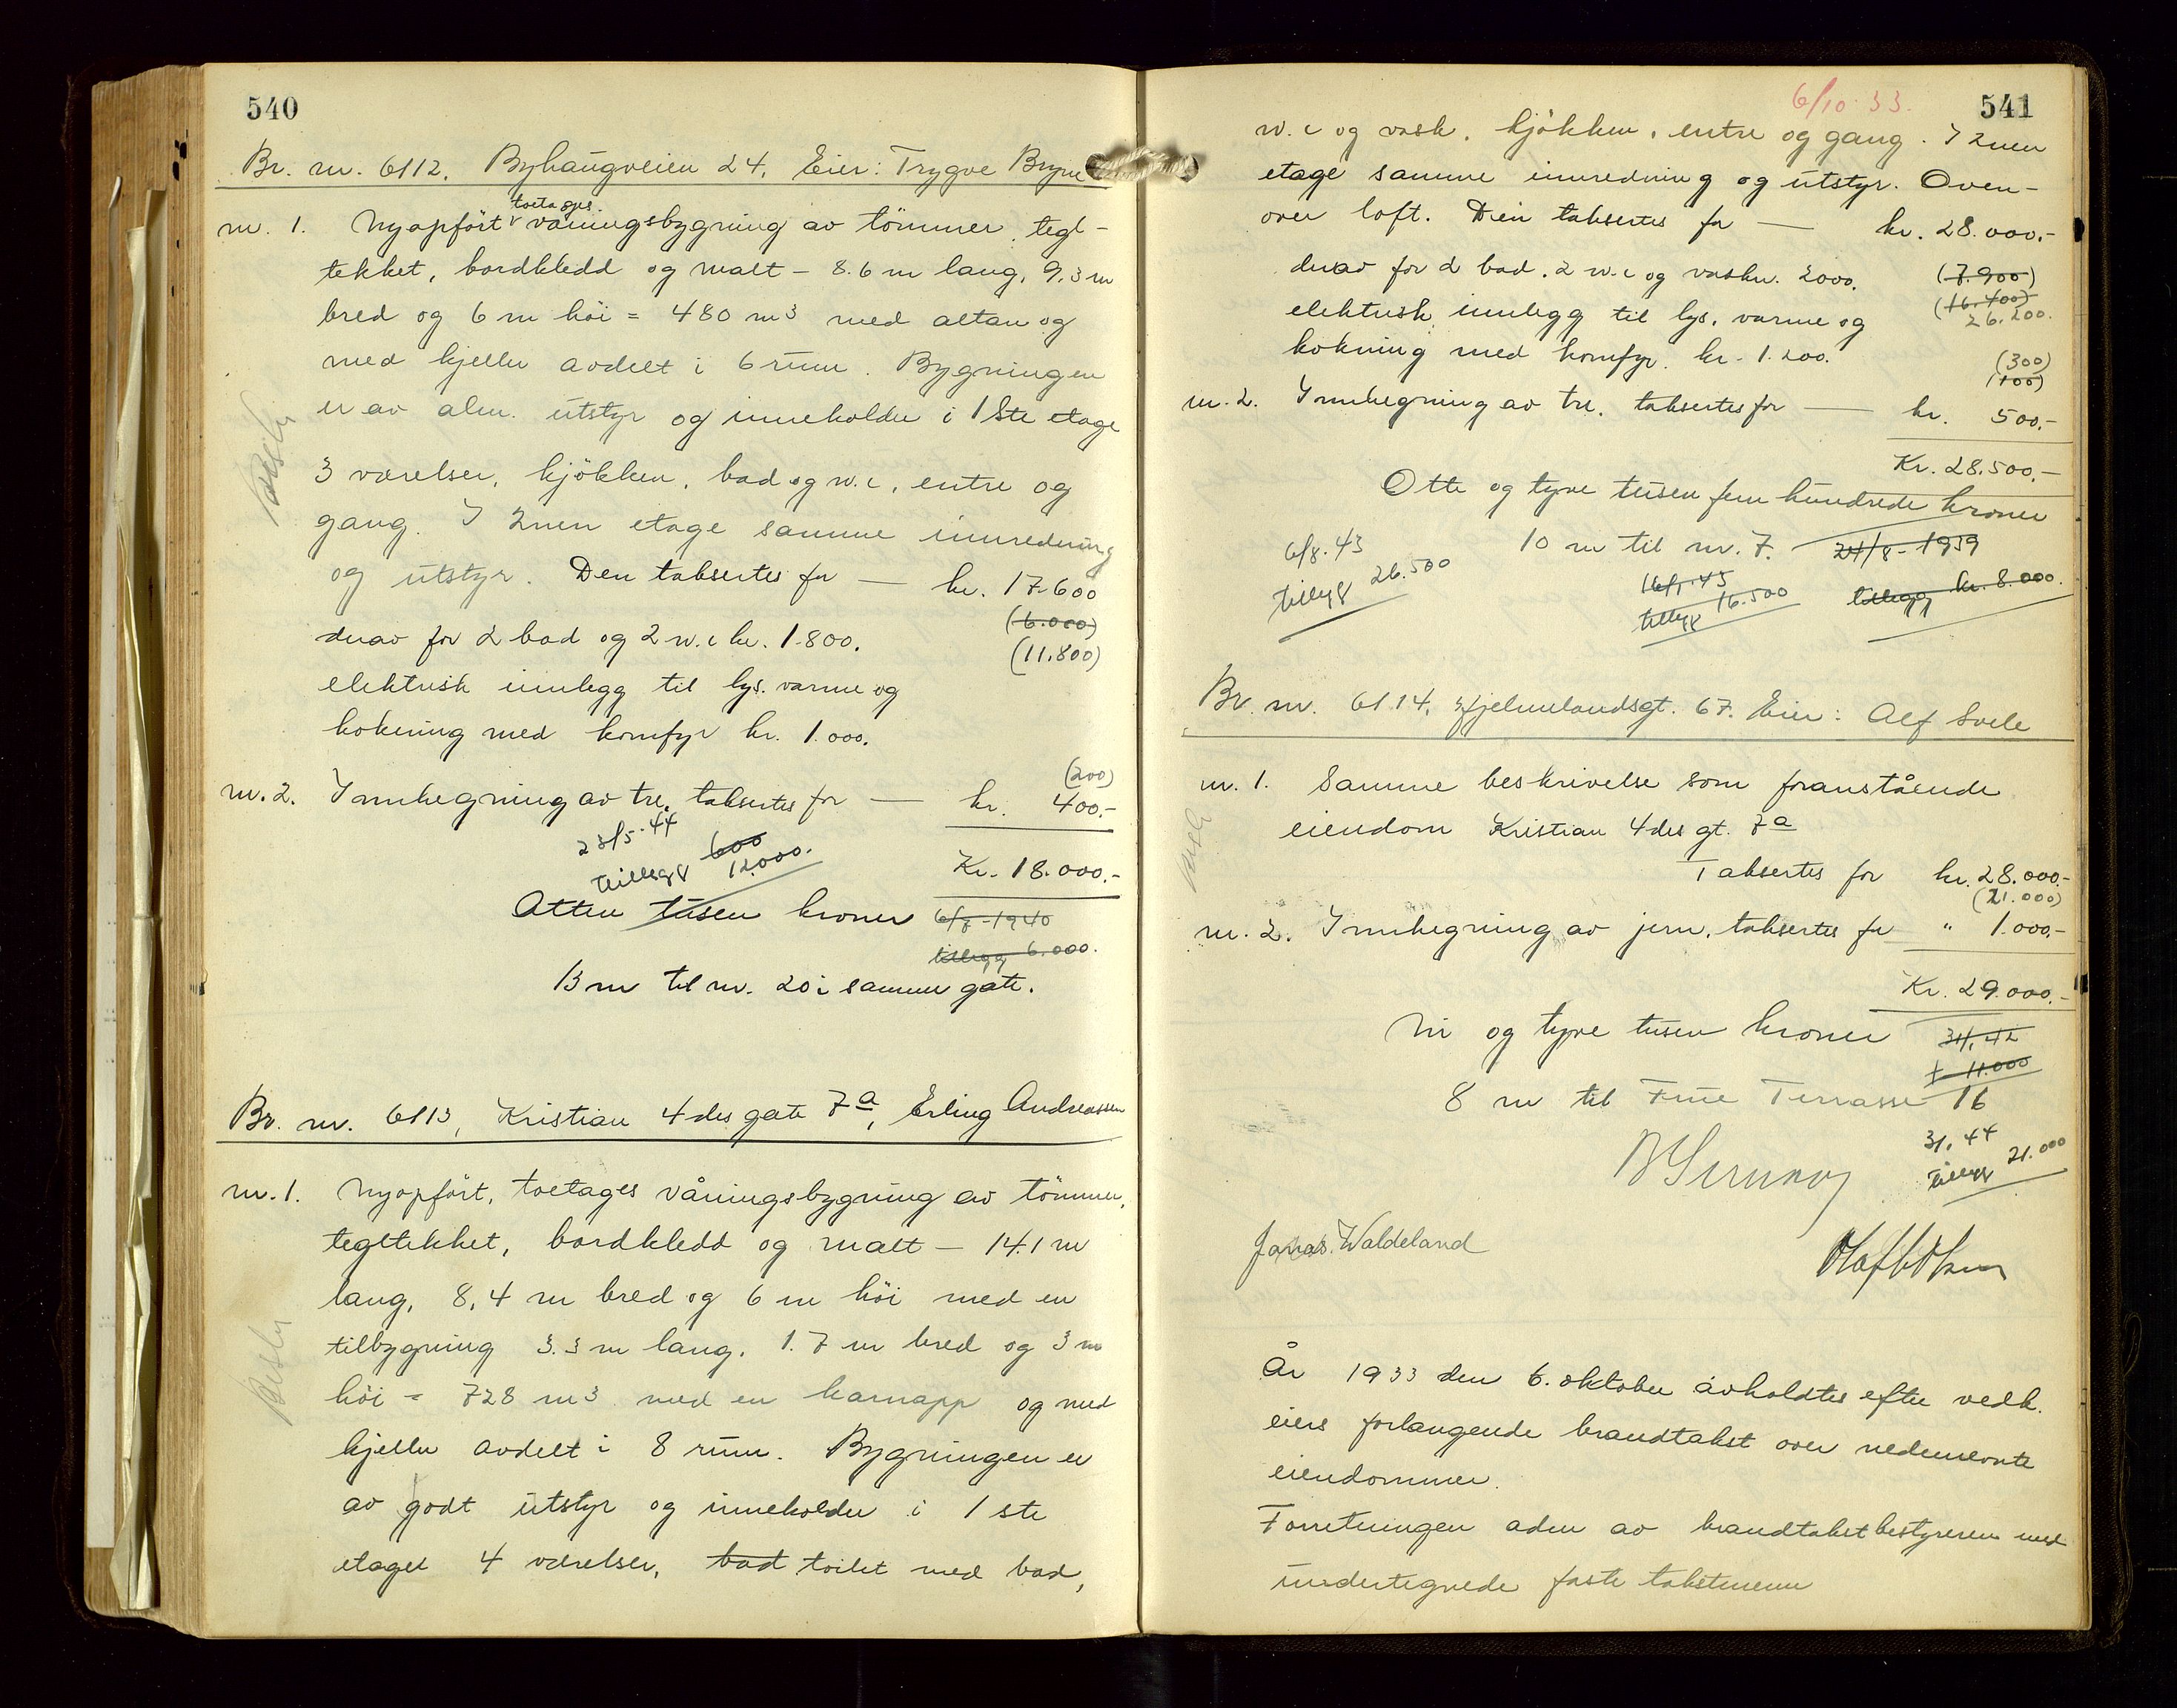 540
Br. nr. 6112, Byhaugveien 24, Eier: Trygve Bryne
toetages
nr. 1. Nyopført våningsbygning av tömmer, tegl-
tekket, bordkledd og malt - 8.6 m lang, 9,3 m
bred og 6 m höi = 480 m3 med altan og
med kjeller avdelt i 6 rum. Bygningen
er av alm. utstyr og inneholder i 1ste etage
3 værelser, kjökken, bad og w.c, entre og
gang. I 2nen etage samme innredning
og utstyr. Den taksertes for — kr. 17.600
(6.000)
derav for 2 bad og 2 w.c kr. 1.800.
(11.800)
elektrisk innlegg til lys, varme og
kokning med komfyr kr. 1.000.
(200)
nr. 2. Innhegning av tre, taksertes for — kr. 400.-
23/5.44
tillegg 600
12.000.
Kr. 18.000.-
Atten tusen kroner 6/7-1940
tillegg 6.000.
13 m til nr. 20 i samme gate.
Br. nr. 6113, Kristian 4des gate 7a, Erling Andreassen
nr. 1. Nyopfört, toetages våningsbygning av tömmer,
tegltekket, bordkledd og malt - 14.1 m
lang, 8,4 m bred og 6 m höi med en
tilbygning 3.3 m lang, 1.7 m bred og 3 m
höi = 728 m3 med en karnapp og med
kjeller avdelt i 8 rum. Bygningen er
av godt utstyr og inneholder i 1ste
etage 4 værelser, bad toilet med bad,
6/10 33.
541
w.c og vask, kjökken, entre og gang. I 2nen
etage samme innredning og utstyr. Oven-
over loft. Den taksertes for — kr. 28.000.-
derav for 2 bad, 2 w.c og vasker. 2000.
(7.900)
(16.400)
26.200.
elektrisk innlegg til lys, varme og
kokning med komfyr kr. 1.200.
(300)
(100)
nr. 2. Innhegning av tre, taksertes for — kr. 500.-
Kr. 28.500.-
Otte og tyve tusen fem hundrede kroner
10 m til nr. 7.
6/8.43
tillegg 26.500
16/1.43
tillegg 16.500
24/8-1939
tillegg kr. 8.000.
Br. nr. 6114, Hjelmelandsgt. 67. Eier: Alf Svele
nr. 1. Samme beskrivelse som foranstående
eiendom Kristian 4des gt. 7a
Taksertes for kr. 28.000.-
(21.000)
nr. 2. Innhegning av jern, taksertes for " 1.000.-
Kr. 29.000.-
Ni og tyve tusen kroner
3/1.42
+ 11.000
8 m til Fine Terrasse 16
3/1.44
tillegg 21.000
Jonas Waldeland
År 1933 den 6. oktober avholdtes efter vedk.
eiers forlangende brandtakst over nedennevnte
eiendommer.
Forretningen adm av brandtakstbestyreren med
undertegnede faste takstmenn